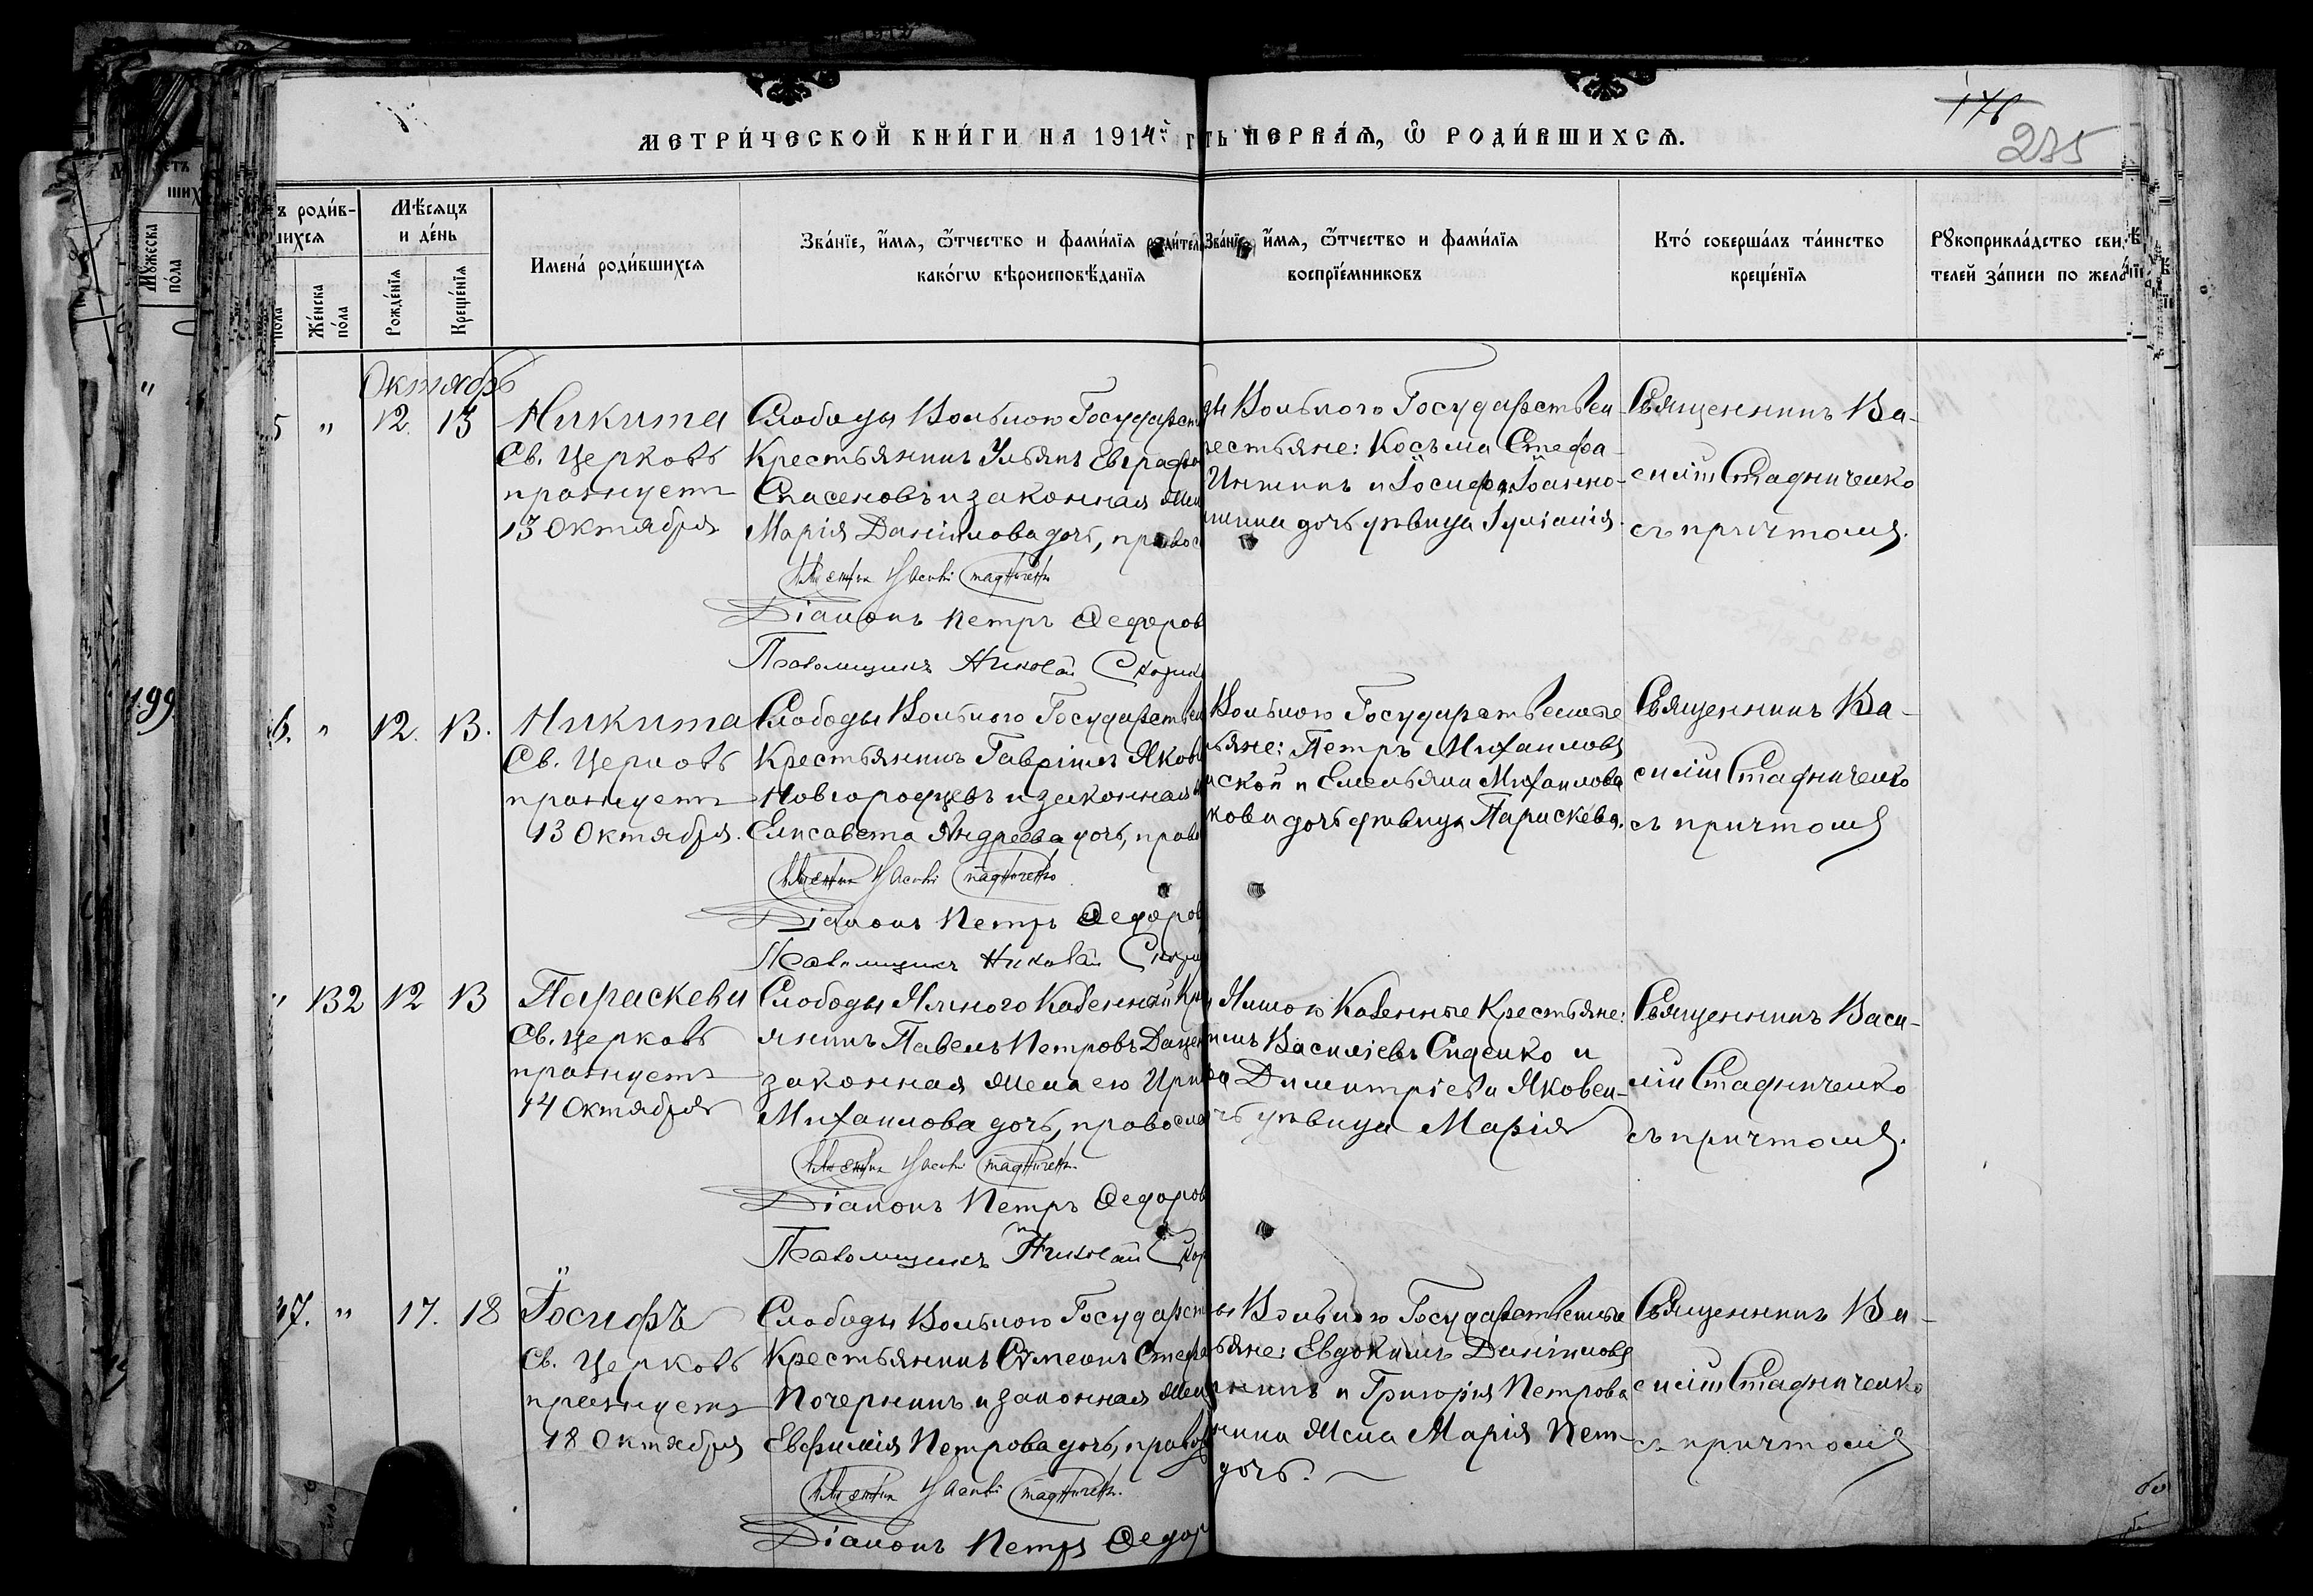 МЕТРИ́ЧЕСКОЙ КНИ́ГИ НА 1914й г ть ПЕРВА́Я, Ѡ РОДИ́ВШИХСЯ.
176
235
ъ роди́в-
шихся
Мѣ́сяцъ
и де́нь
Имена́ роди́вшихся
Зва́нїе, и҆́мя, ѻ҆́тчество и фами́лїя родител
како́гѡ вѣроисповѣ́данїя
Зва́нїе, и҆́мя, ѻ҆́тчество и фами́лїя
воспрїе́мниковъ
Кто́ соверша́лъ та́инство
креще́нїя
Рꙋкоприкла́дство свидѣ
телей за́писи по жела́нїю
Мꙋжеска
по́ла
Же́нска
по́ла
Рожде́нїя
Креще́нїя
Октябрь
5 " 12. 13 Никита
Св. Церковь
празнуетъ
13 Октября
Слободы Вольного Государст
Крестьянинъ Ульянъ Евграфов
Спасеновъ и законная жен
Марія Даніилова дочь, правос
Священник Василій Стадниченко
Діаконъ Петръ Ѳедоров
Псаломщикъ Николай Скор
ды Вольного Государствен-
рестьяне: Косьма Стефа-
и Іосифа Іоанно-
дочь дѣвица Іуліанія.
Священникъ Ва-
силій Стадниченко
съ причтомъ.
199
6. " 12. 13. Никита
Св. Церковь
празнуетъ
13 Октября.
Слободы Вольного Государствен
Крестьянинъ Гавріилъ Яков
Новгородцевъ и законная
Елисавета Андреева дочь, право
Священник Василій Стадниченко
Діаконъ Петръ Ѳедоров
Псаломщикъ Николай Скори
Вольного Государственные
тьяне: Петръ Михаиловъ
ской и Емельяна Михаилова
кова дочь дѣвица Параскева.
Священникъ Ва-
силій Стадниченко
съ причтомъ
" 132 12 13 Параскева
Св. Церковь
празнуетъ
14 Октября
Слободы Ямного Казенный Кр
янинъ Павелъ Петровъ Даце
законная жена его Ири
Михаилова дочь, правосла
Священник Василій Стадниченко
Діаконъ Петръ Ѳедоров
Псаломщикъ Николай Скор
Ямного Казенные Крестьяне:
илъ Василіевъ Сиденко и
Димитріева Яковен-
чь дѣвица Марія
Священникъ Васи-
лій Стадниченко
съ причтомъ.
47. " 17. 18 Іосифъ
Св. Церковь
празнуетъ
18 Октября
Слободы Вольного Государст
Крестьянинъ Сѵмеонъ Стефа
Почернинъ и законная жен
Евфимія Петрова дочь, правос
Священник Василій Стадниченко
Діаконъ Петръ Ѳедор
ы Вольного Государственные
тьяне: Евдокимъ Даніиловъ
и Григорія Петрова
нина жена Марія Пет-
дочь.
Священникъ Ва-
силій Стадниченко
съ причтомъ